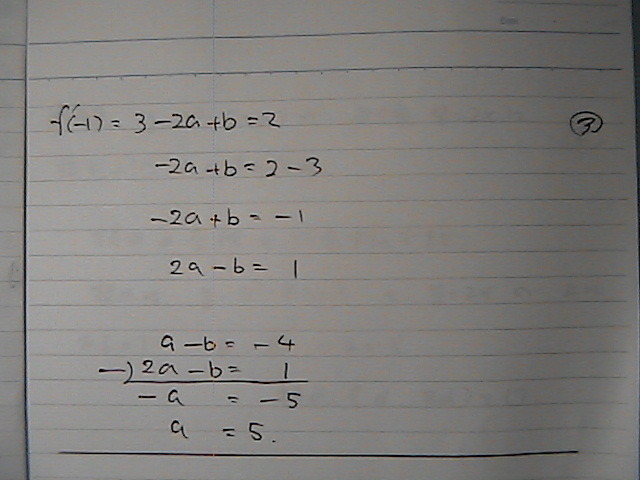 f'(-1) = 3 - 2a + b = 2 ③
-2a + b = 2 - 3
-2a + b = -1
2a - b = 1
a - b = -4
-) 2a - b = 1
-a = -5
a = 5.